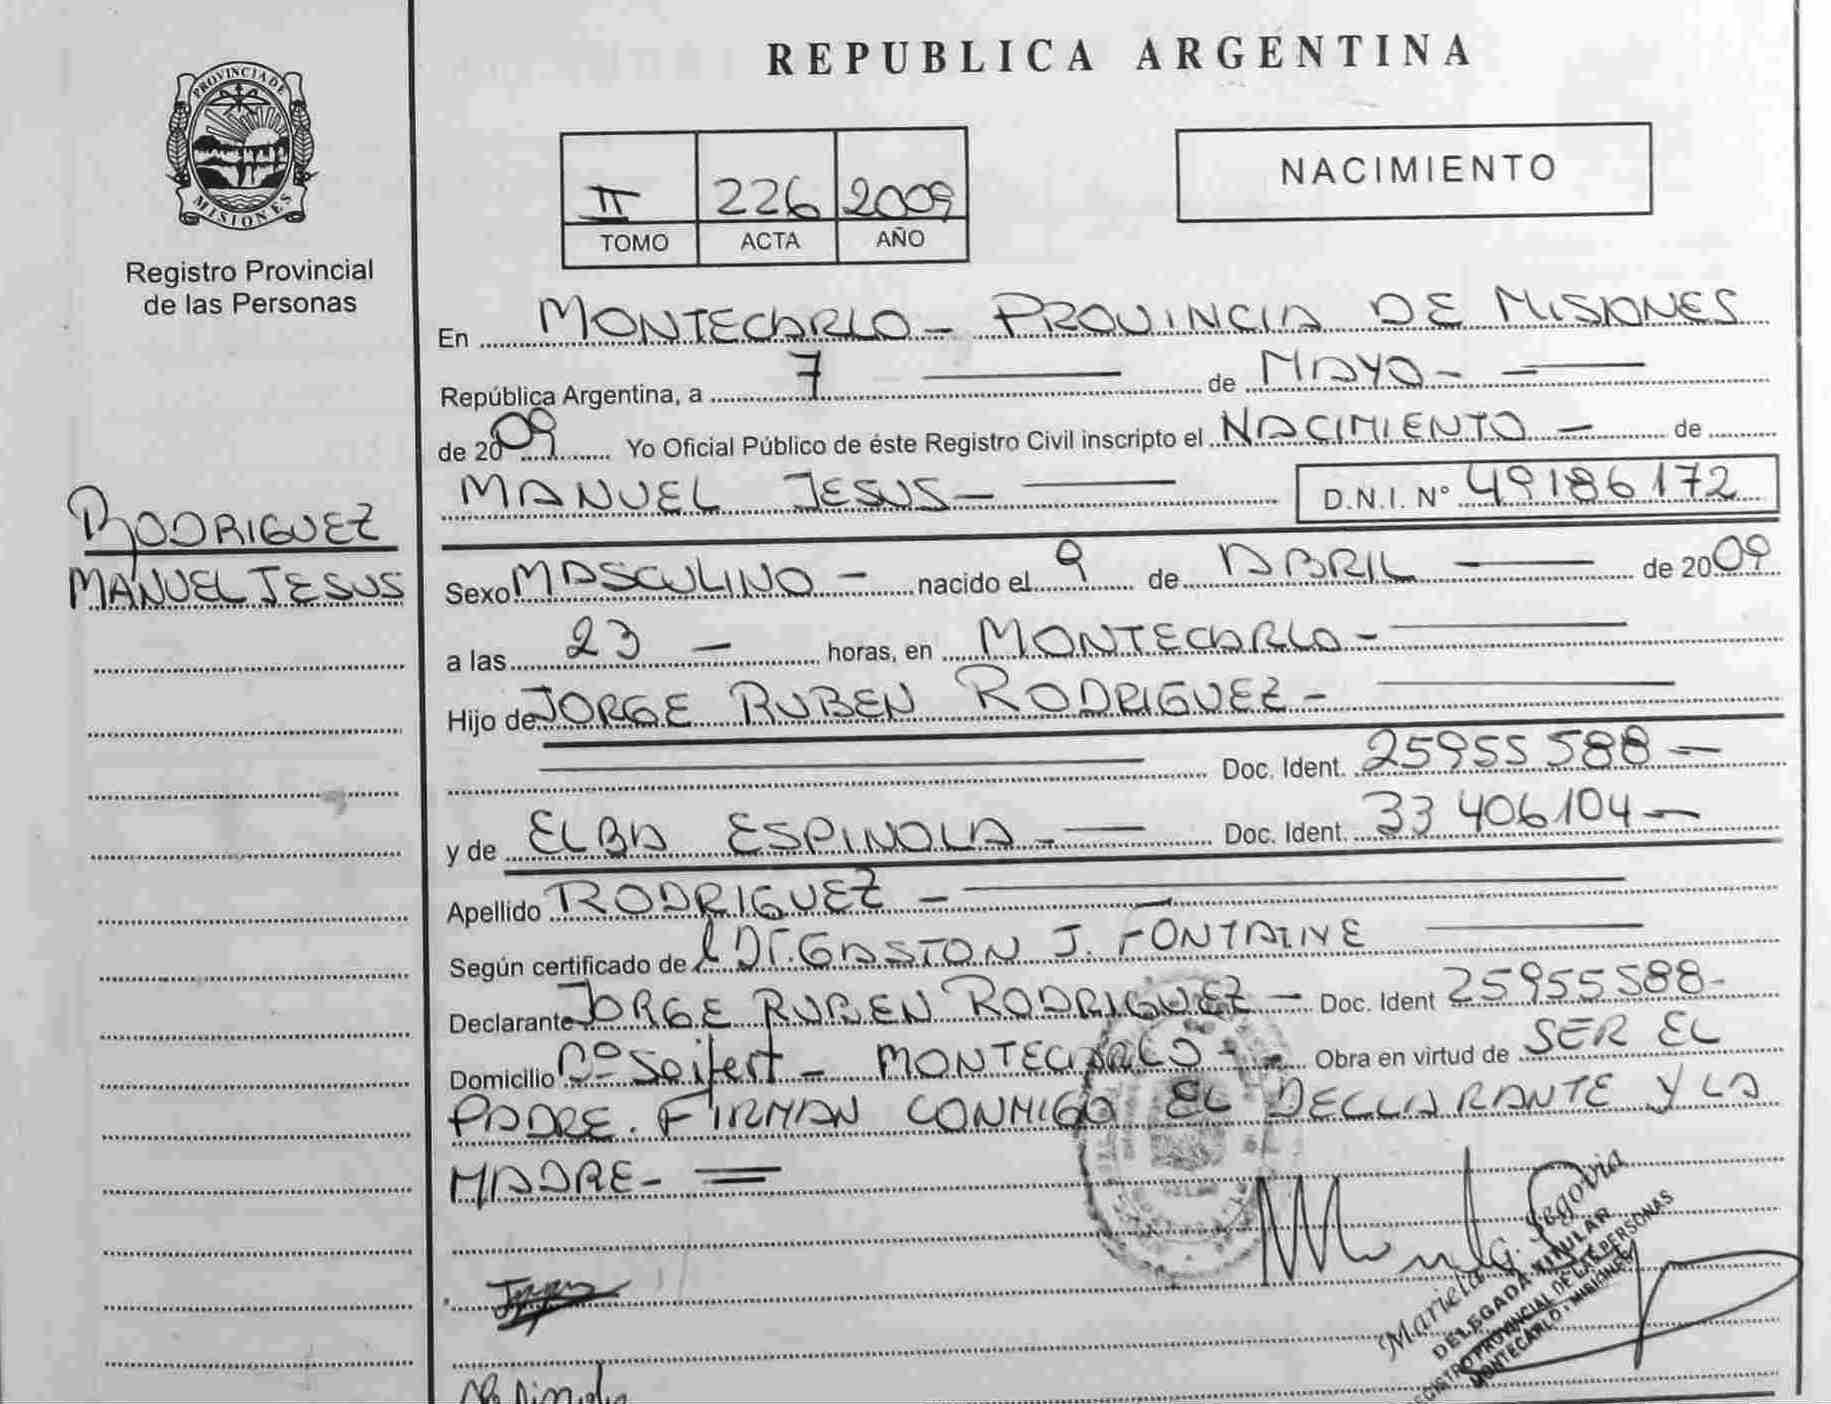 REPUBLICA ARGENTINA
PROVINCIA DE
MISIONES
Registro Provincial
de las Personas
II 226 2009
TOMO ACTA AÑO
NACIMIENTO
En MONTECARLO - PROVINCIA DE MISIONES
República Argentina, a 7 de MAYO -
de 2009 Yo Oficial Público de éste Registro Civil inscripto el NACIMIENTO - de
MANUEL JESUS - D.N.I. Nº 49186172
RODRIGUEZ
MANUEL JESUS
Sexo MASCULINO - nacido el 9 de ABRIL de 2009
a las 23 - horas, en MONTECARLO -
Hijo de JORGE RUBEN RODRIGUEZ -
Doc. Ident. 25955588 -
y de ELBA ESPINOLA - Doc. Ident. 33406104 -
Apellido RODRIGUEZ -
Según certificado de l Dr. GASTON J. FONTAINE
Declarante JORGE RUBEN RODRIGUEZ - Doc. Ident 25955588 -
Domicilio Bº Seifert - MONTECARLO - Obra en virtud de SER EL
PADRE. FIRMAN CONMIGO EL DECLARANTE Y LA
MADRE -
Mariela G. Segovia
DELEGADA TITULAR
REGISTRO PROVINCIAL DE LAS PERSONAS
MONTECARLO - MISIONES